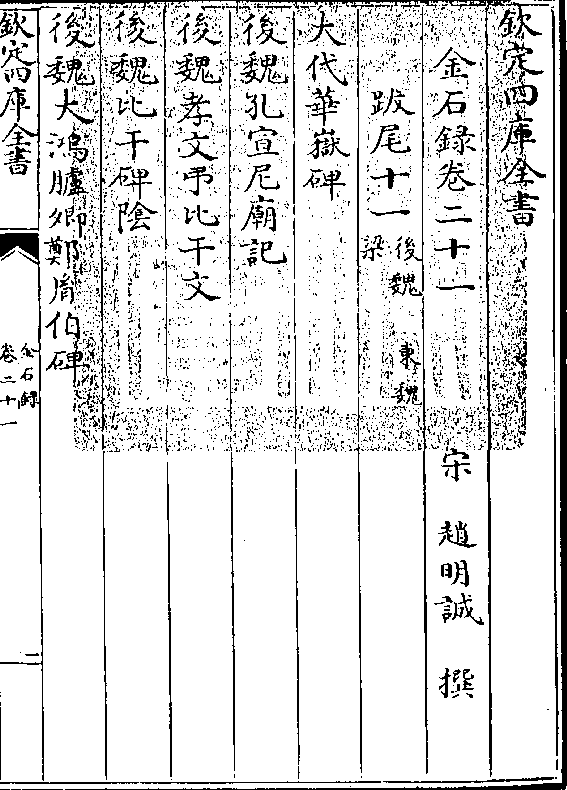 欽定四庫全書
金石録卷二十一
宋 趙明誠 撰
跋尾十一 後魏 東魏 梁
大代華嶽碑
後魏孔宣尼廟記
後魏孝文弔比干文
後魏比干碑陰
後魏大鴻臚卿鄭胤伯碑
欽定四庫全書
金石録
卷二十一
一